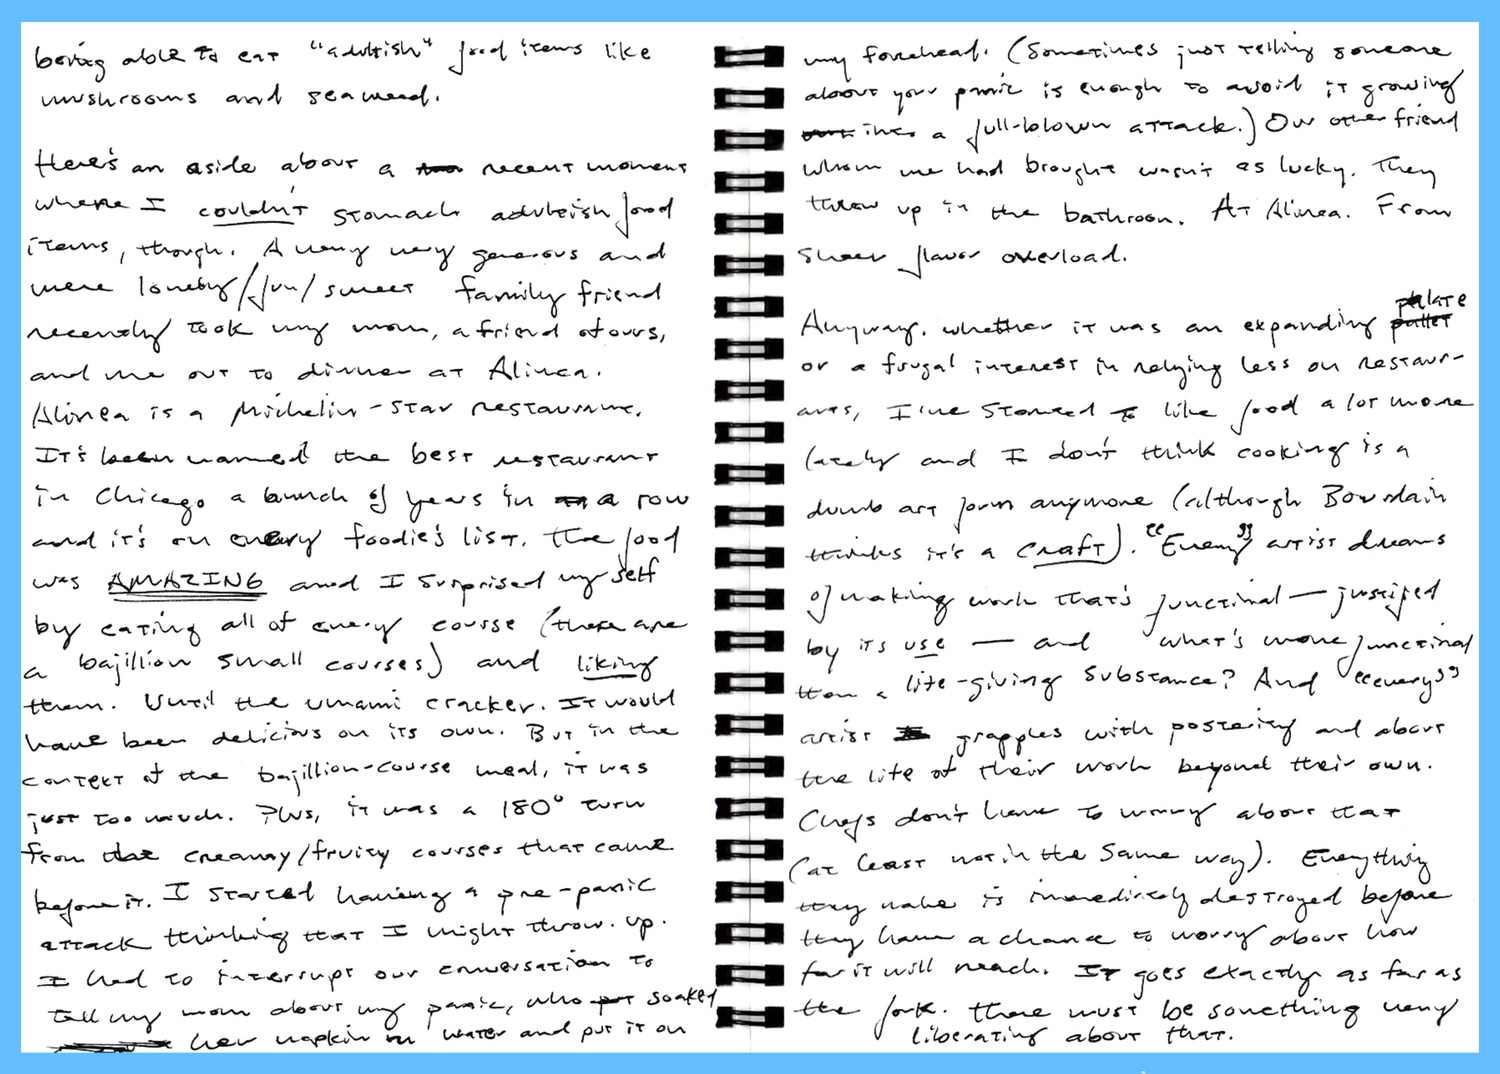 being able to eat "adultish" food items like
mushrooms and seaweed.
Here's an aside about a recent moment
where I couldn't stomach adultish food
items, though. A very very generous and
mere lovely/fun/sweet family friend
recently took my mom, a friend of ours,
and me out to dinner at Alinea.
Alinea is a Michelin-star restaurant.
It's been named the best restaurant
in Chicago a bunch of years in a row
and it's on every foodie's list. The food
was AMAZING and I surprised myself
by eating all of every course (there are
a bajillion small courses) and liking
them. Until the umami cracker. It would
have been delicious on its own. But in the
context of the bajillion-course meal, it was
just too much. Plus, it was a 180° turn
from the creamy/fruity courses that came
before it. I started having a pre-panic
attack thinking that I might throw up.
I had to interrupt our conversation to
tell my mom about my panic, who put soaked
her napkin in water and put it on
my forehead. (Sometimes just telling someone
about your panic is enough to avoid it growing
into a full-blown attack.) Our other friend
whom we had brought wasn't as lucky. They
threw up in the bathroom. At Alinea. From
sheer flavor overload.
Anyway, whether it was an expanding pallet palate
or a frugal interest in relying less on restaur-
ants, I've started to like food a lot more
lately and I don't think cooking is a
dumb art form anymore (although Bourdain
thinks it's a craft). "Every" artist dreams
of making work that's functinal — justified
by its use — and what's more functinal
than a life-giving substance? And "every"
artist grapples with posterity and about
the life of their work beyond their own.
Chefs don't have to worry about that
(at least not in the same way). Everything
they make is immediately destroyed before
they have a chance to worry about how
far it will reach. It goes exactly as far as
the fork. There must be something very
liberating about that.